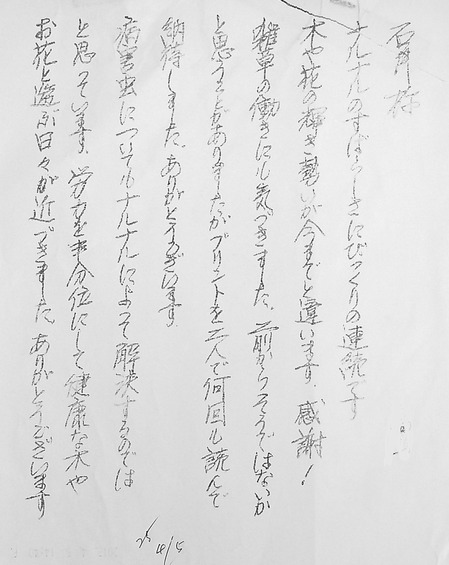 石井様
ナルナルのすばらしさにびっくりの連続です
木や花の輝き勢いが今までと違います。感謝!
雑草の働きにも気づきました。前からそうではないか
と思うことがありましたがプリントを二人で何回も読んで
納得しました。ありがとうございます
病害虫についてもナルナルによって解決するのでは
と思っています。労力を半分位にして健康な木や
お花と遊ぶ日々が近づきました。ありがとうございます
4/5